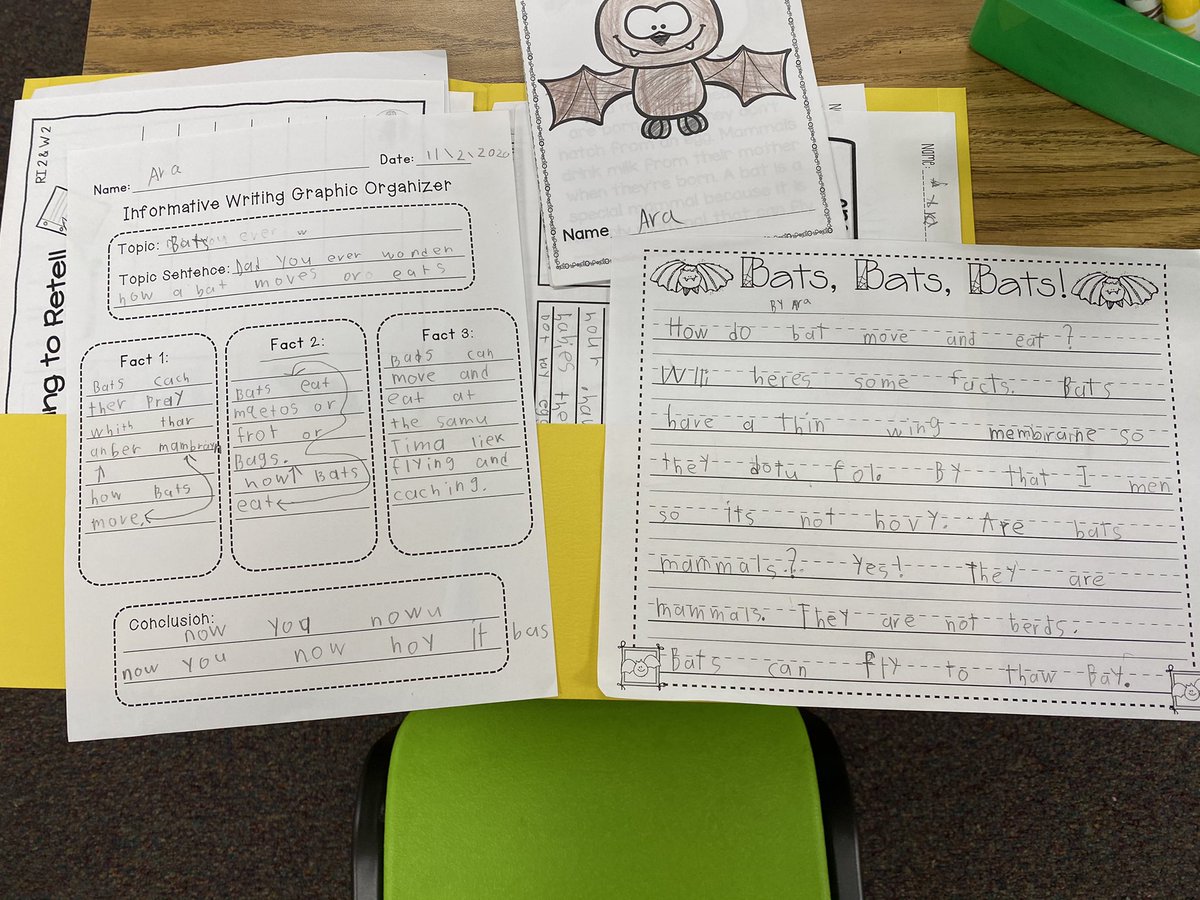 RI.2 & W.2
ng to Retell
Name: Ara
Date: 11\2\2020
Informative Writing Graphic Organizer
Topic: Bats
Topic Sentence: Dad You ever wonder
how a bat moves oro eats
Fact 1:
Bats cach
ther pray
whith thar
anber mambrayn
how Bats
move.
Fact 2:
Bats eat
mqetos or
frot or
Bags.
how Bats
eat
Fact 3:
Bats can
move and
eat at
the samu
Tima liek
flying and
caching.
Conclusion:
now you nowu
now you now hoy it bas
Name Ara
Name:
hour
babies the
Bats, Bats, Bats!
BY Ara
How do bat move and eat?
Wlli heres some facts. Bats
have a thin wing membrane so
they dotu fol. BY that I men
so its not hovy. Are bats
mammals? Yes! They are
mammals. They are not berds.
Bats can fly to thaw Bay.